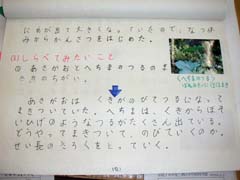 にめが出て大きくなっていたので、なつは
みからかんさつをはじめた。
(1)しらべてみたいこと
① あさがおとへちまのつるのま
きかたのちがい。
あさがおは くきがのびてつるになって
まきついていた。へちまは、くきからほそ
いひげのようなつるがたくさん出ている。
どうやってまきついて、のびていくのか、
せい長のきろくをとっていく。
(へちまのつる)